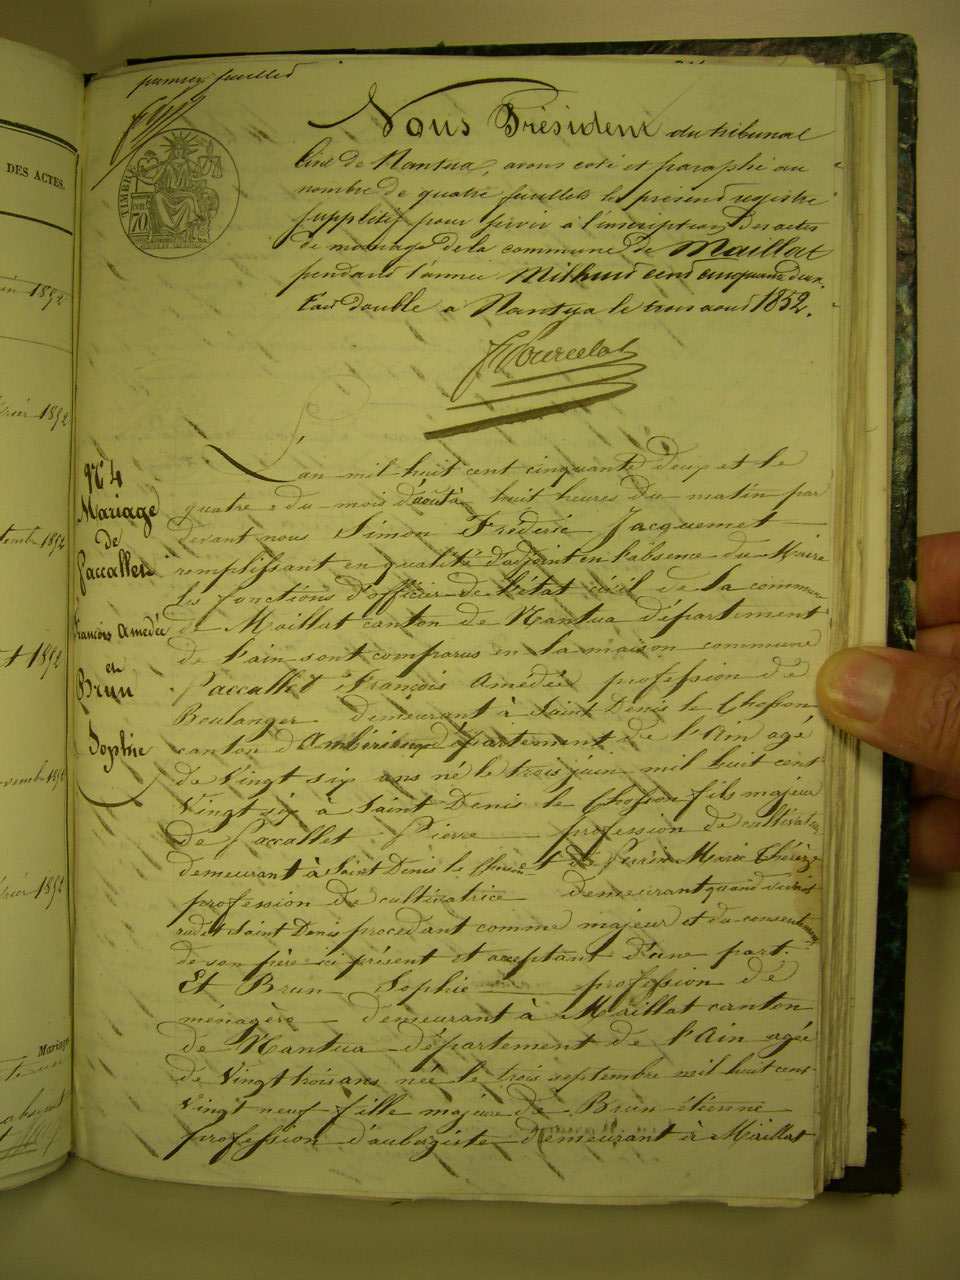 DES ACTES.
premier feuillet
TIMBRE
70
Nous Président du tribunal
civil de Nantua, avons coté et paraphé au
nombre de quatre feuillets le présent registre
supplétif pour servir à l'inscription des actes
de mariage de la commune de Maillat
pendant l'année Mil huit cent cinquante deux.
Fait double à Nantua le trois aout 1852.
N° 4
Mariage
de
Paccallet
François Amédée
et
Brun
Sophie
L'an mil huit cent cinquante deux et le
quatre du mois d'août à huit heures du matin par
devant nous Simon Frédéric Jacquemet
remplissant en qualité d'adjoint en l'absence du Maire
les fonctions d'officier de l'état civil de la commune
de Maillat canton de Nantua département
de l'ain sont comparus en la maison commune
Paccallet François Amédée profession de
Boulanger demeurant à Saint Denis le Chosson
canton d'Ambérieux département de l'Ain agé
de Vingt six ans né le trois juin mil huit cent
Vingt six à Saint Denis le Chosson fils majeur
de Paccallet Pierre profession de cultivateur
demeurant à Saint Denis le Chosson et de Perrin Marie Thérèze
profession de cultivatrice demeurant quand vivait
Saint Denis procédant comme majeur et du consentement
de son père ici présent et acceptant d'une part.
Et Brun Sophie profession de
ménagère demeurant à Maillat canton
de Nantua département de l'Ain agée
de Vingt trois ans née le trois septembre mil huit cent
Vingt neuf fille majeure de Brun étienne
profession d'aubergiste demeurant à Maillat
1852
1852
1852
1852
Mariage